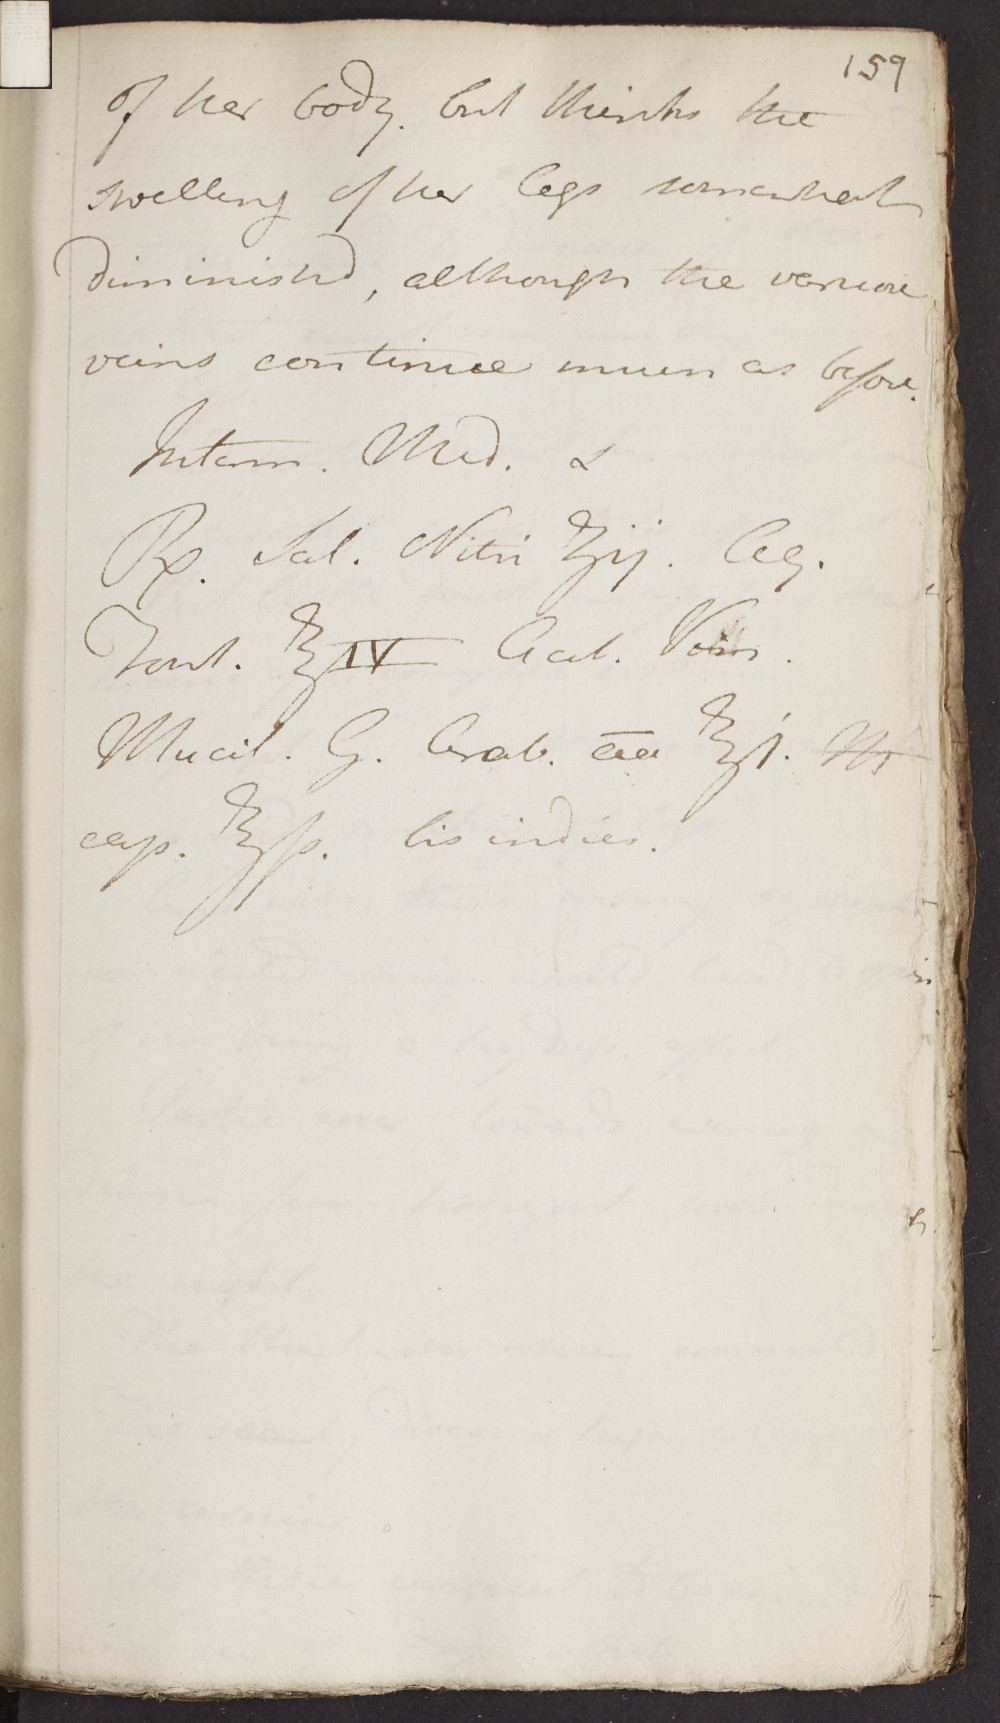 159
of her body. but thinks the
swelling of her legs somewhat
diminishd, although the varicose
veins continue much as before.
Interm. Med. &
Rx. Sal. Nitri ℥ij. Aq.
Font. ℥IV Acet. Vini.
Mucil. G. Arab. āā ℥j. M
cap. ℥ß. bis indies.